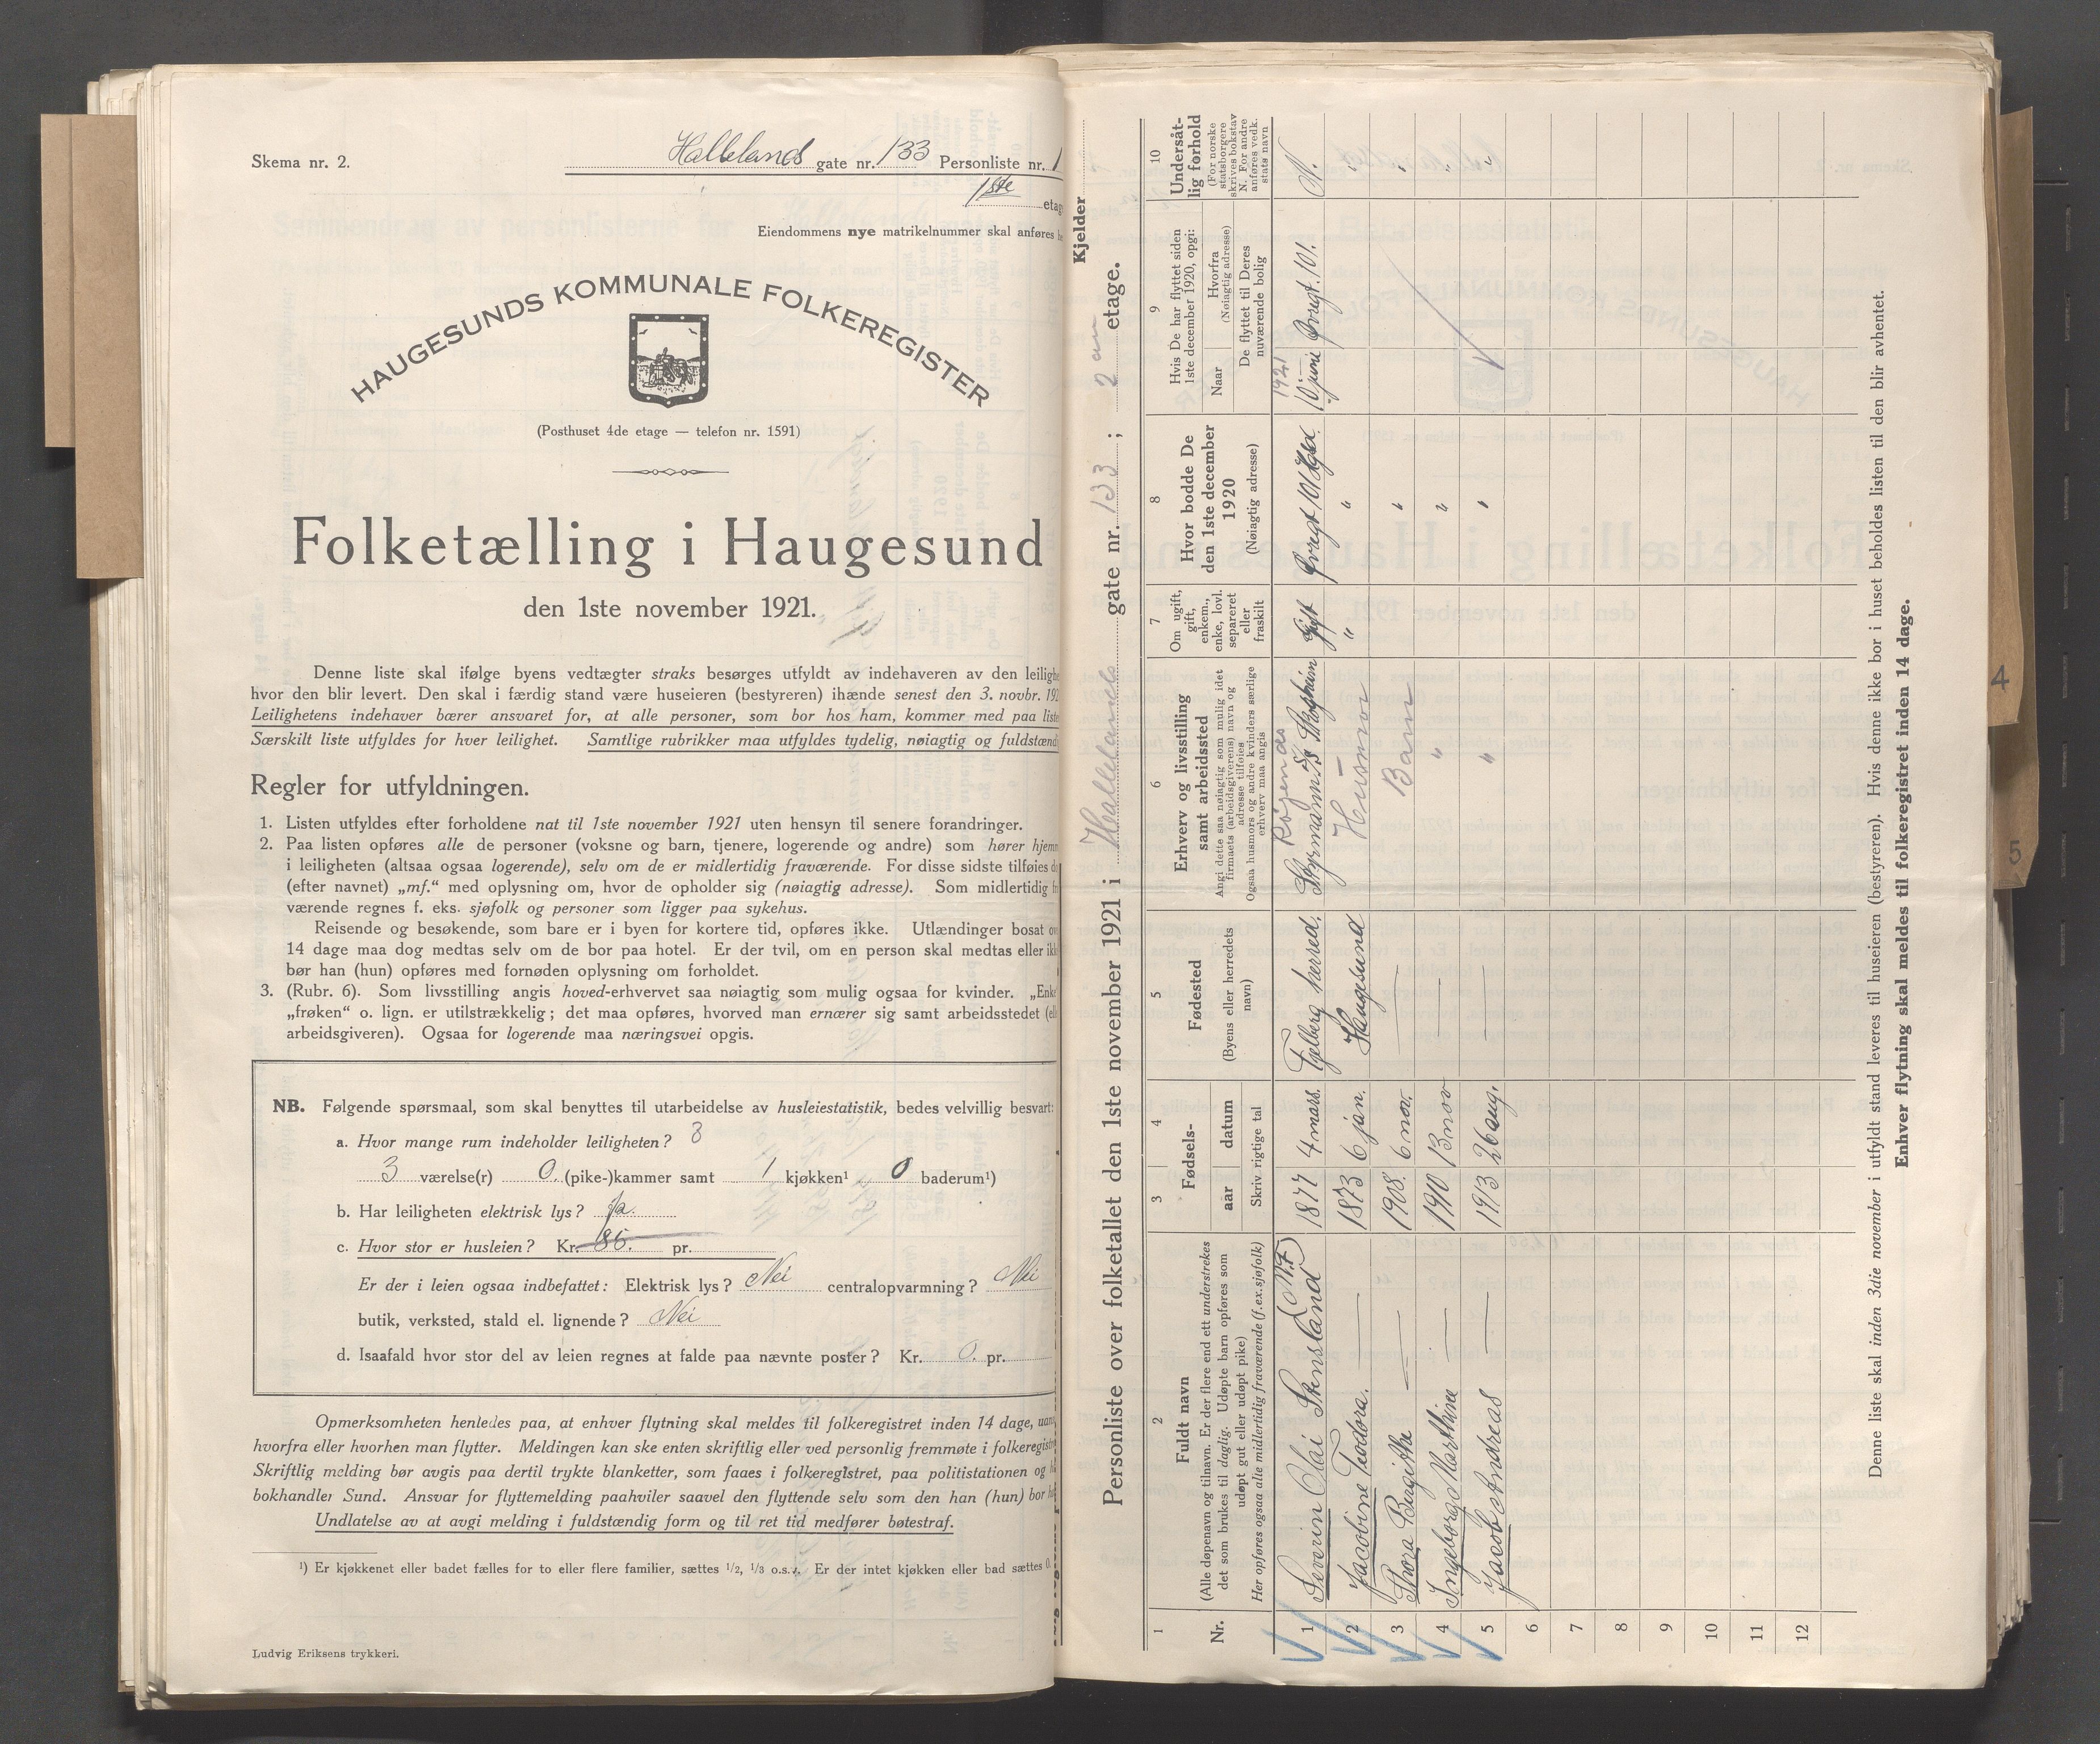 Skema nr. 2.
Hallelands gate nr. 133 Personliste nr. 1
1ste etag
Eiendommens nye matrikelnummer skal anføres he
HAUGESUNDS KOMMUNALE FOLKEREGISTER
(Posthuset 4de etage — telefon nr. 1591)
Folketælling i Haugesund
den 1ste november 1921.
Denne liste skal ifølge byens vedtægter straks besørges utfyldt av indehaveren av den leilighe
hvor den blir levert. Den skal i færdig stand være huseieren (bestyreren) ihænde senest den 3. novbr. 192
Leilighetens indehaver bærer ansvaret for, at alle personer, som bor hos ham, kommer med paa liste
Særskilt liste utfyldes for hver leilighet. Samtlige rubrikker maa utfyldes tydelig, nøiagtig og fuldstænd
Regler for utfyldningen.
1. Listen utfyldes efter forholdene nat til 1ste november 1921 uten hensyn til senere forandringer.
2. Paa listen opføres alle de personer (voksne og barn, tjenere, logerende og andre) som hører hjem
i leiligheten (altsaa ogsaa logerende), selv om de er midlertidig fraværende. For disse sidste tilføies d
(efter navnet) „mf.“ med oplysning om, hvor de opholder sig (nøiagtig adresse). Som midlertidig f
værende regnes f. eks. sjøfolk og personer som ligger paa sykehus.
Reisende og besøkende, som bare er i byen for kortere tid, opføres ikke. Utlændinger bosat o
14 dage maa dog medtas selv om de bor paa hotel. Er der tvil, om en person skal medtas eller ik
bør han (hun) opføres med fornøden oplysning om forholdet.
3. (Rubr. 6). Som livsstilling angis hoved-erhvervet saa nøiagtig som mulig ogsaa for kvinder. „Enke
„frøken“ o. lign. er utilstrækkelig; det maa opføres, hvorved man ernærer sig samt arbeidsstedet (el
arbeidsgiveren). Ogsaa for logerende maa næringsvei opgis.
NB. Følgende spørsmaal, som skal benyttes til utarbeidelse av husleiestatistik, bedes velvillig besvart:
a. Hvor mange rum indeholder leiligheten? 3
3 værelse(r) 0. (pike-)kammer samt 1 kjøkken¹ 0 baderum¹)
b. Har leiligheten elektrisk lys? Ja.
c. Hvor stor er husleien? Kr. 86. pr.
Er der i leien ogsaa indbefattet: Elektrisk lys? Nei centralopvarmning? Nei
butik, verksted, stald el. lignende? Nei
d. Isaafald hvor stor del av leien regnes at falde paa nævnte poster? Kr. 0. pr.
Opmerksomheten henledes paa, at enhver flytning skal meldes til folkeregistret inden 14 dage, uan
hvorfra eller hvorhen man flytter. Meldingen kan ske enten skriftlig eller ved personlig fremmøte i folkeregist
Skriftlig melding bør avgis paa dertil trykte blanketter, som faaes i folkeregistret, paa politistationen og h
bokhandler Sund. Ansvar for flyttemelding paahviler saavel den flyttende selv som den han (hun) bor h
Undlatelse av at avgi melding i fuldstændig form og til ret tid medfører bøtestraf.
¹) Er kjøkkenet eller badet fælles for to eller flere familier, sættes 1/2, 1/3 o.s.v. Er der intet kjøkken eller bad sættes 0.
Ludvig Eriksens trykkeri.
Kjelder
Personliste over folketallet den 1ste november 1921 i Hallelands gate nr. 133 ; 2 etage.
1 2 3 4 5 6 7 8 9 10
Nr.
Fuldt navn
(Alle døpenavn og tilnavn. Er der flere end ett understrekes
det som brukes til daglig. Udøpte barn opføres som
udøpt gut eller udøpt pike)
Her opføres ogsaa alle midlertidig fraværende (f.ex. sjøfolk)
Fødsels-
aar datum
Skriv rigtige tal
Fødested
(Byens eller herredets
navn)
Erhverv og livsstilling
samt arbeidssted
Angi dette saa nøiagtig som mulig idet
firmaets (arbeidsgiverens) navn og
adresse tilføies
Ogsaa husmors og andre kvinders særlige
erhverv maa angis
Om ugift,
gift,
enkem.,
enke, lovl.
separeret
eller
fraskilt
Hvor bodde De
den 1ste december
1920
(Nøiagtig adresse)
Hvis De har flyttet siden
1ste december 1920, opgi:
Naar
Hvorfra
(Nøiagtig adresse)
De flyttet til Deres
nuværende bolig
Undersåt-
lig forhold
(For norske
statsborgere
skrives bokstav
N. For andre
anføres vedk.
stats navn
1 Severin Olai Stensland (M.F) 1877 4 mars. Fjelberg herred. Styrmann Gift 1921 10 juni N.
2 Jacobine Teodora. — 1873 6 jan. Haugesund Husmor " " "
3 Thora Bergitha — 1908. 6 nov. — Barn " "
4 Ingeborg Marthine — 1910 13 nov — " " "
5 Jacob Andreas — 1913 26 aug. — " " "
6
7
8
9
10
11
12
Denne liste skal inden 3die november i utfyldt stand leveres til huseieren (bestyreren). Hvis denne ikke bor i huset beholdes listen til den blir avhentet.
Enhver flytning skal meldes til folkeregistret inden 14 dage.
4
5